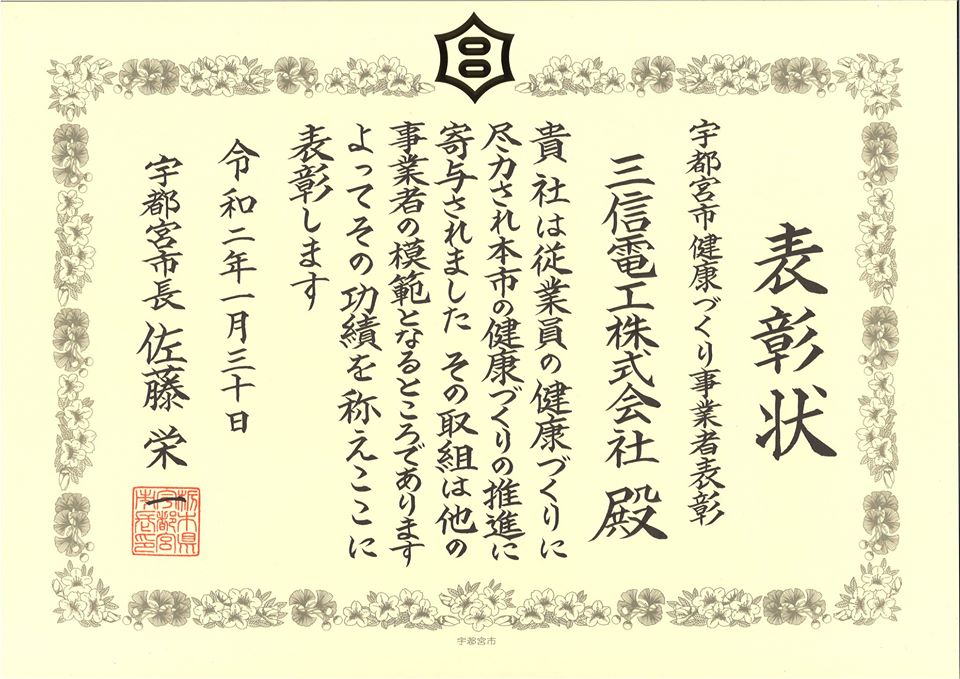 表彰状
宇都宮市健康づくり事業者表彰
三信電工株式会社 殿
貴社は従業員の健康づくりに
尽力され本市の健康づくりの推進に
寄与されました その取組は他の
事業者の模範となるところであります
よってその功績を称えここに
表彰します
令和二年一月三十日
宇都宮市長 佐藤 栄一
栃木県
宇都宮
市長印
宇都宮市